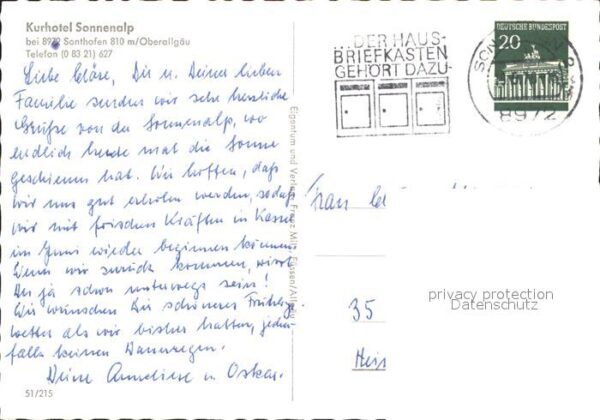 Kurhotel Sonnenalp
bei 8972 Sonthofen 810 m/Oberallgäu
Telefon (0 83 21) 627
Liebe Cläre, Dir u. Deiner lieben
Familie senden wir sehr herzliche
Grüße von der Sonnenalp, wo
endlich heute mal die Sonne
geschienen hat. Wir hoffen, daß
wir uns gut erholen werden, sodaß
wir mit frischen Kräften in Kassel
im Juni wieder beginnen können.
Wenn wir zurück kommen, wirst
Du ja schon unterwegs sein!
Wir wünschen Dir schöneres Frühlings
wetter als wir bisher hatten, jeden-
falls keinen Dauerregen.
Deine Anneliese u. Oskar.
51/215
Eigentum und Verlag Franz Milz, Füssen/Allgäu
DER HAUS-
BRIEFKASTEN
GEHÖRT DAZU
DEUTSCHE BUNDESPOST
20
8972
Frau
35
privacy protection
Datenschutz